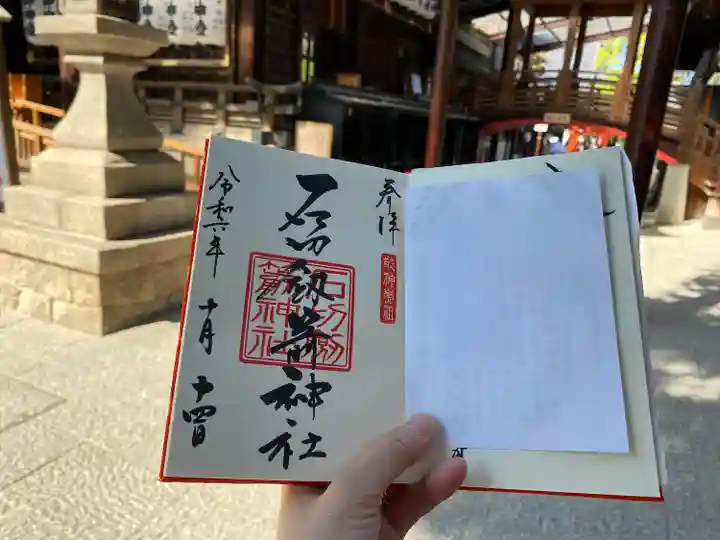 奉拝
敬神崇祖
石切劔箭神社
石切劔
箭神社
令和六年
十月
十四日